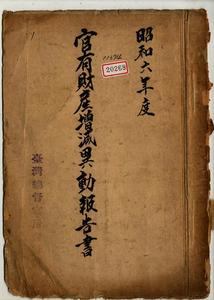 昭和六年度
官有財産増減異動報告書
20268
臺灣總督府